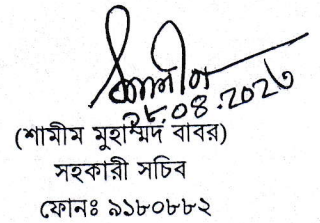 ২৮.০৪.২০২৩
(শামীম মুহাম্মদ বাবর)
সহকারী সচিব
ফোনঃ ৯১৮০৮৮২